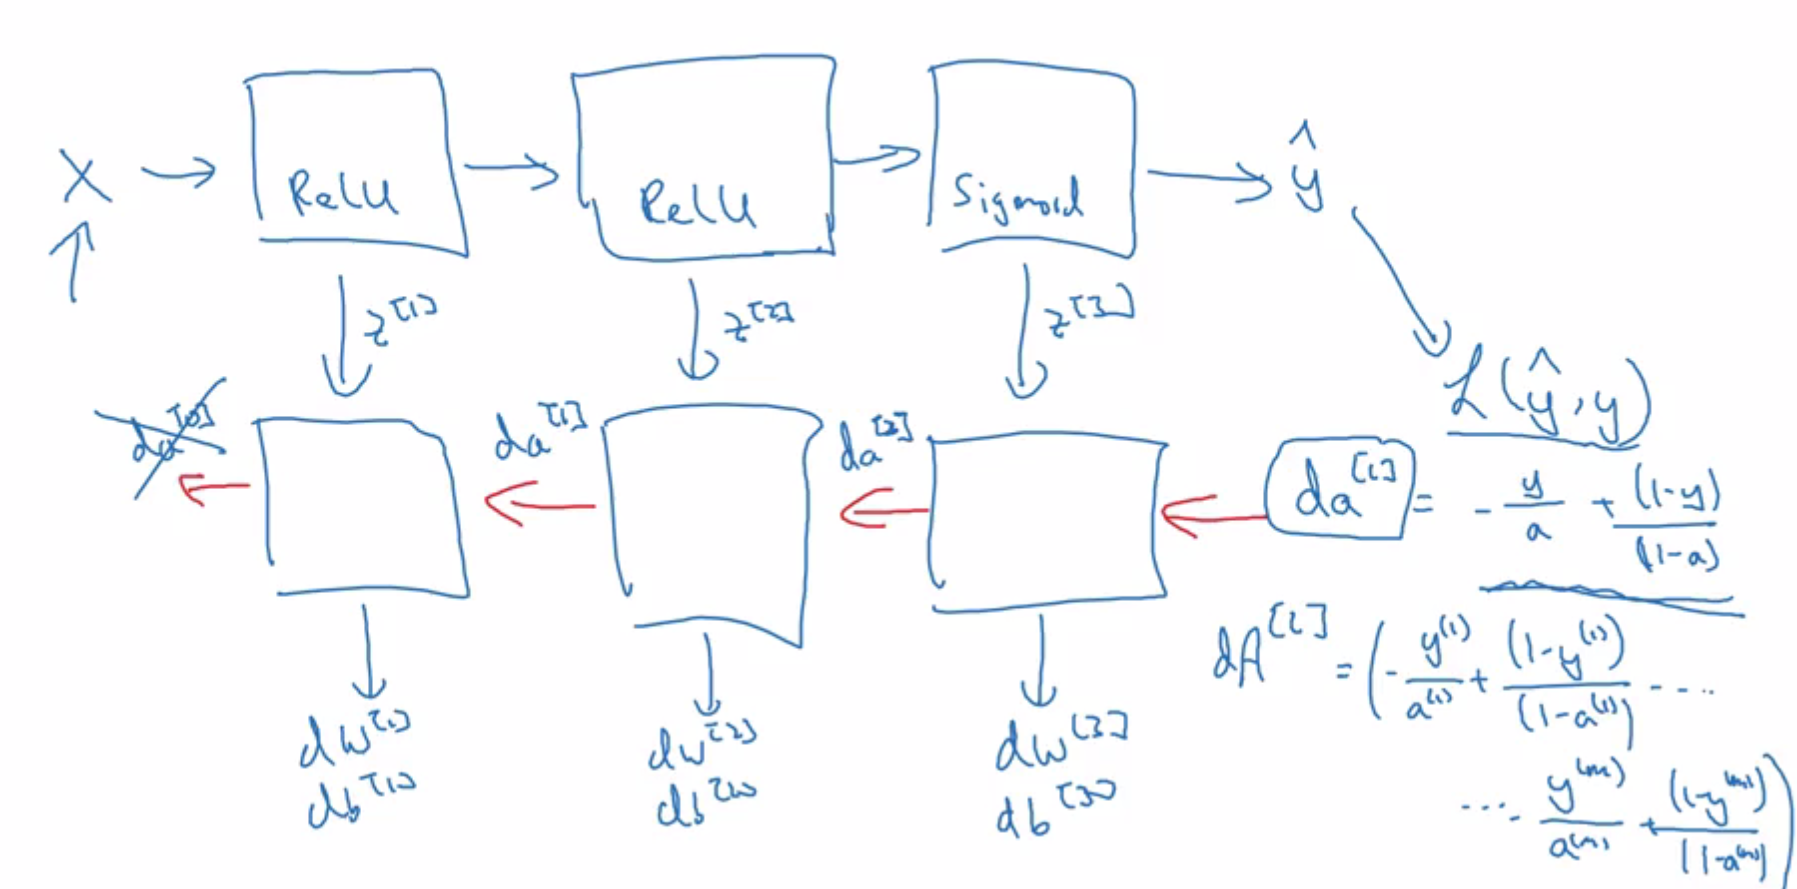 X → ReLU → ReLU → Sigmoid → ŷ
z^[1] z^[2] z^[3]
L(ŷ, y)
da^[0] da^[1] da^[2] da^[l] = - y/a + (1-y)/(1-a)
dA^[l] = (- y^(1)/a^(1) + (1-y^(1))/(1-a^(1)) ----
.... - y^(m)/a^(m) + (1-y^(m))/(1-a^(m)))
dw^[1] dw^[2] dw^[3]
db^[1] db^[2] db^[3]